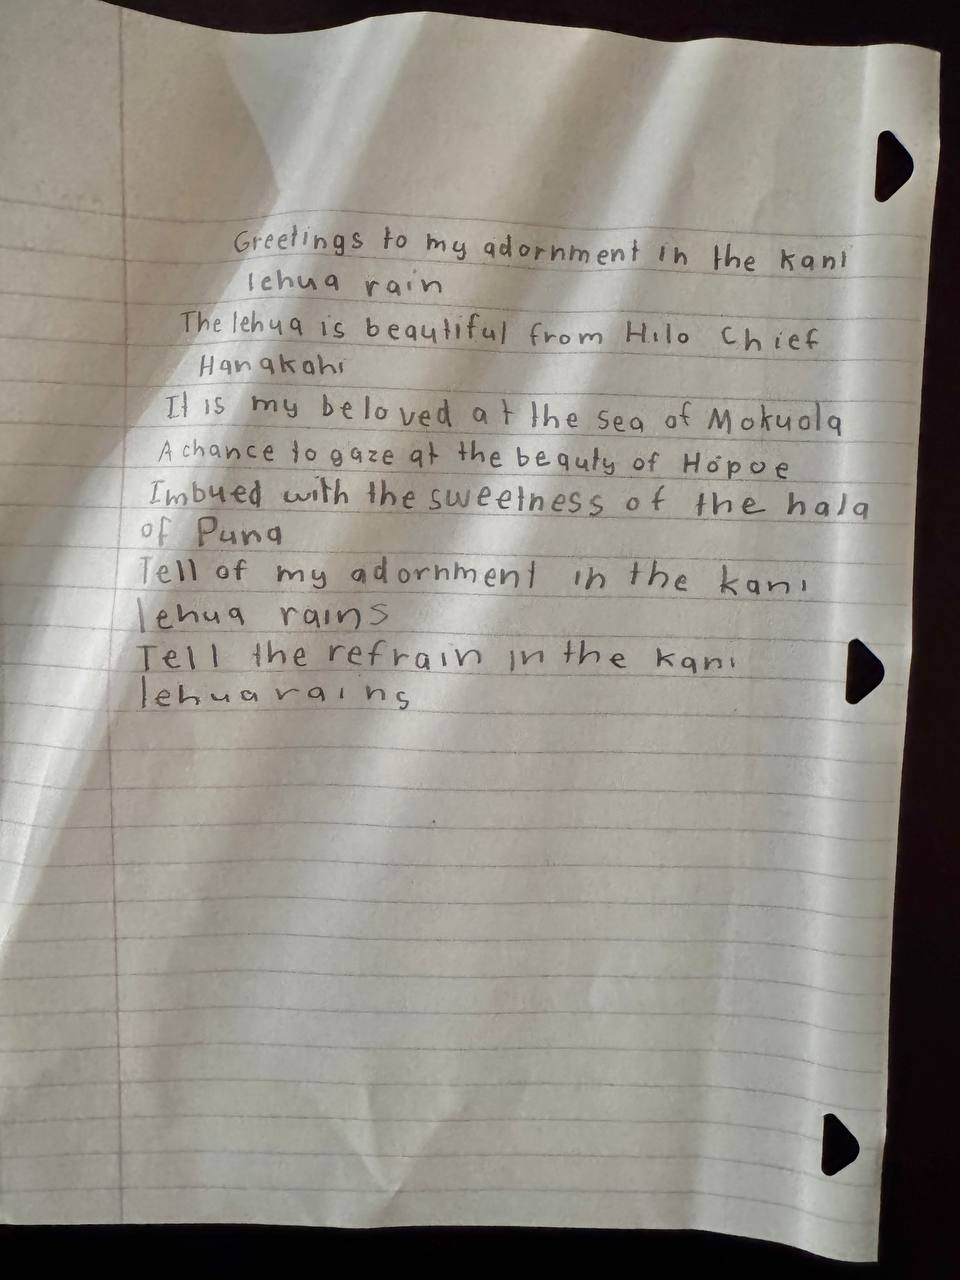 Greetings to my adornment in the kani
lehua rain
The lehua is beautiful from Hilo Chief
Hanakahi
It is my beloved at the sea of Mokuola
A chance to gaze at the beauty of Hōpoe
Imbued with the sweetness of the hala
of Puna
Tell of my adornment in the kani
lehua rains
Tell the refrain in the kani
lehua rains